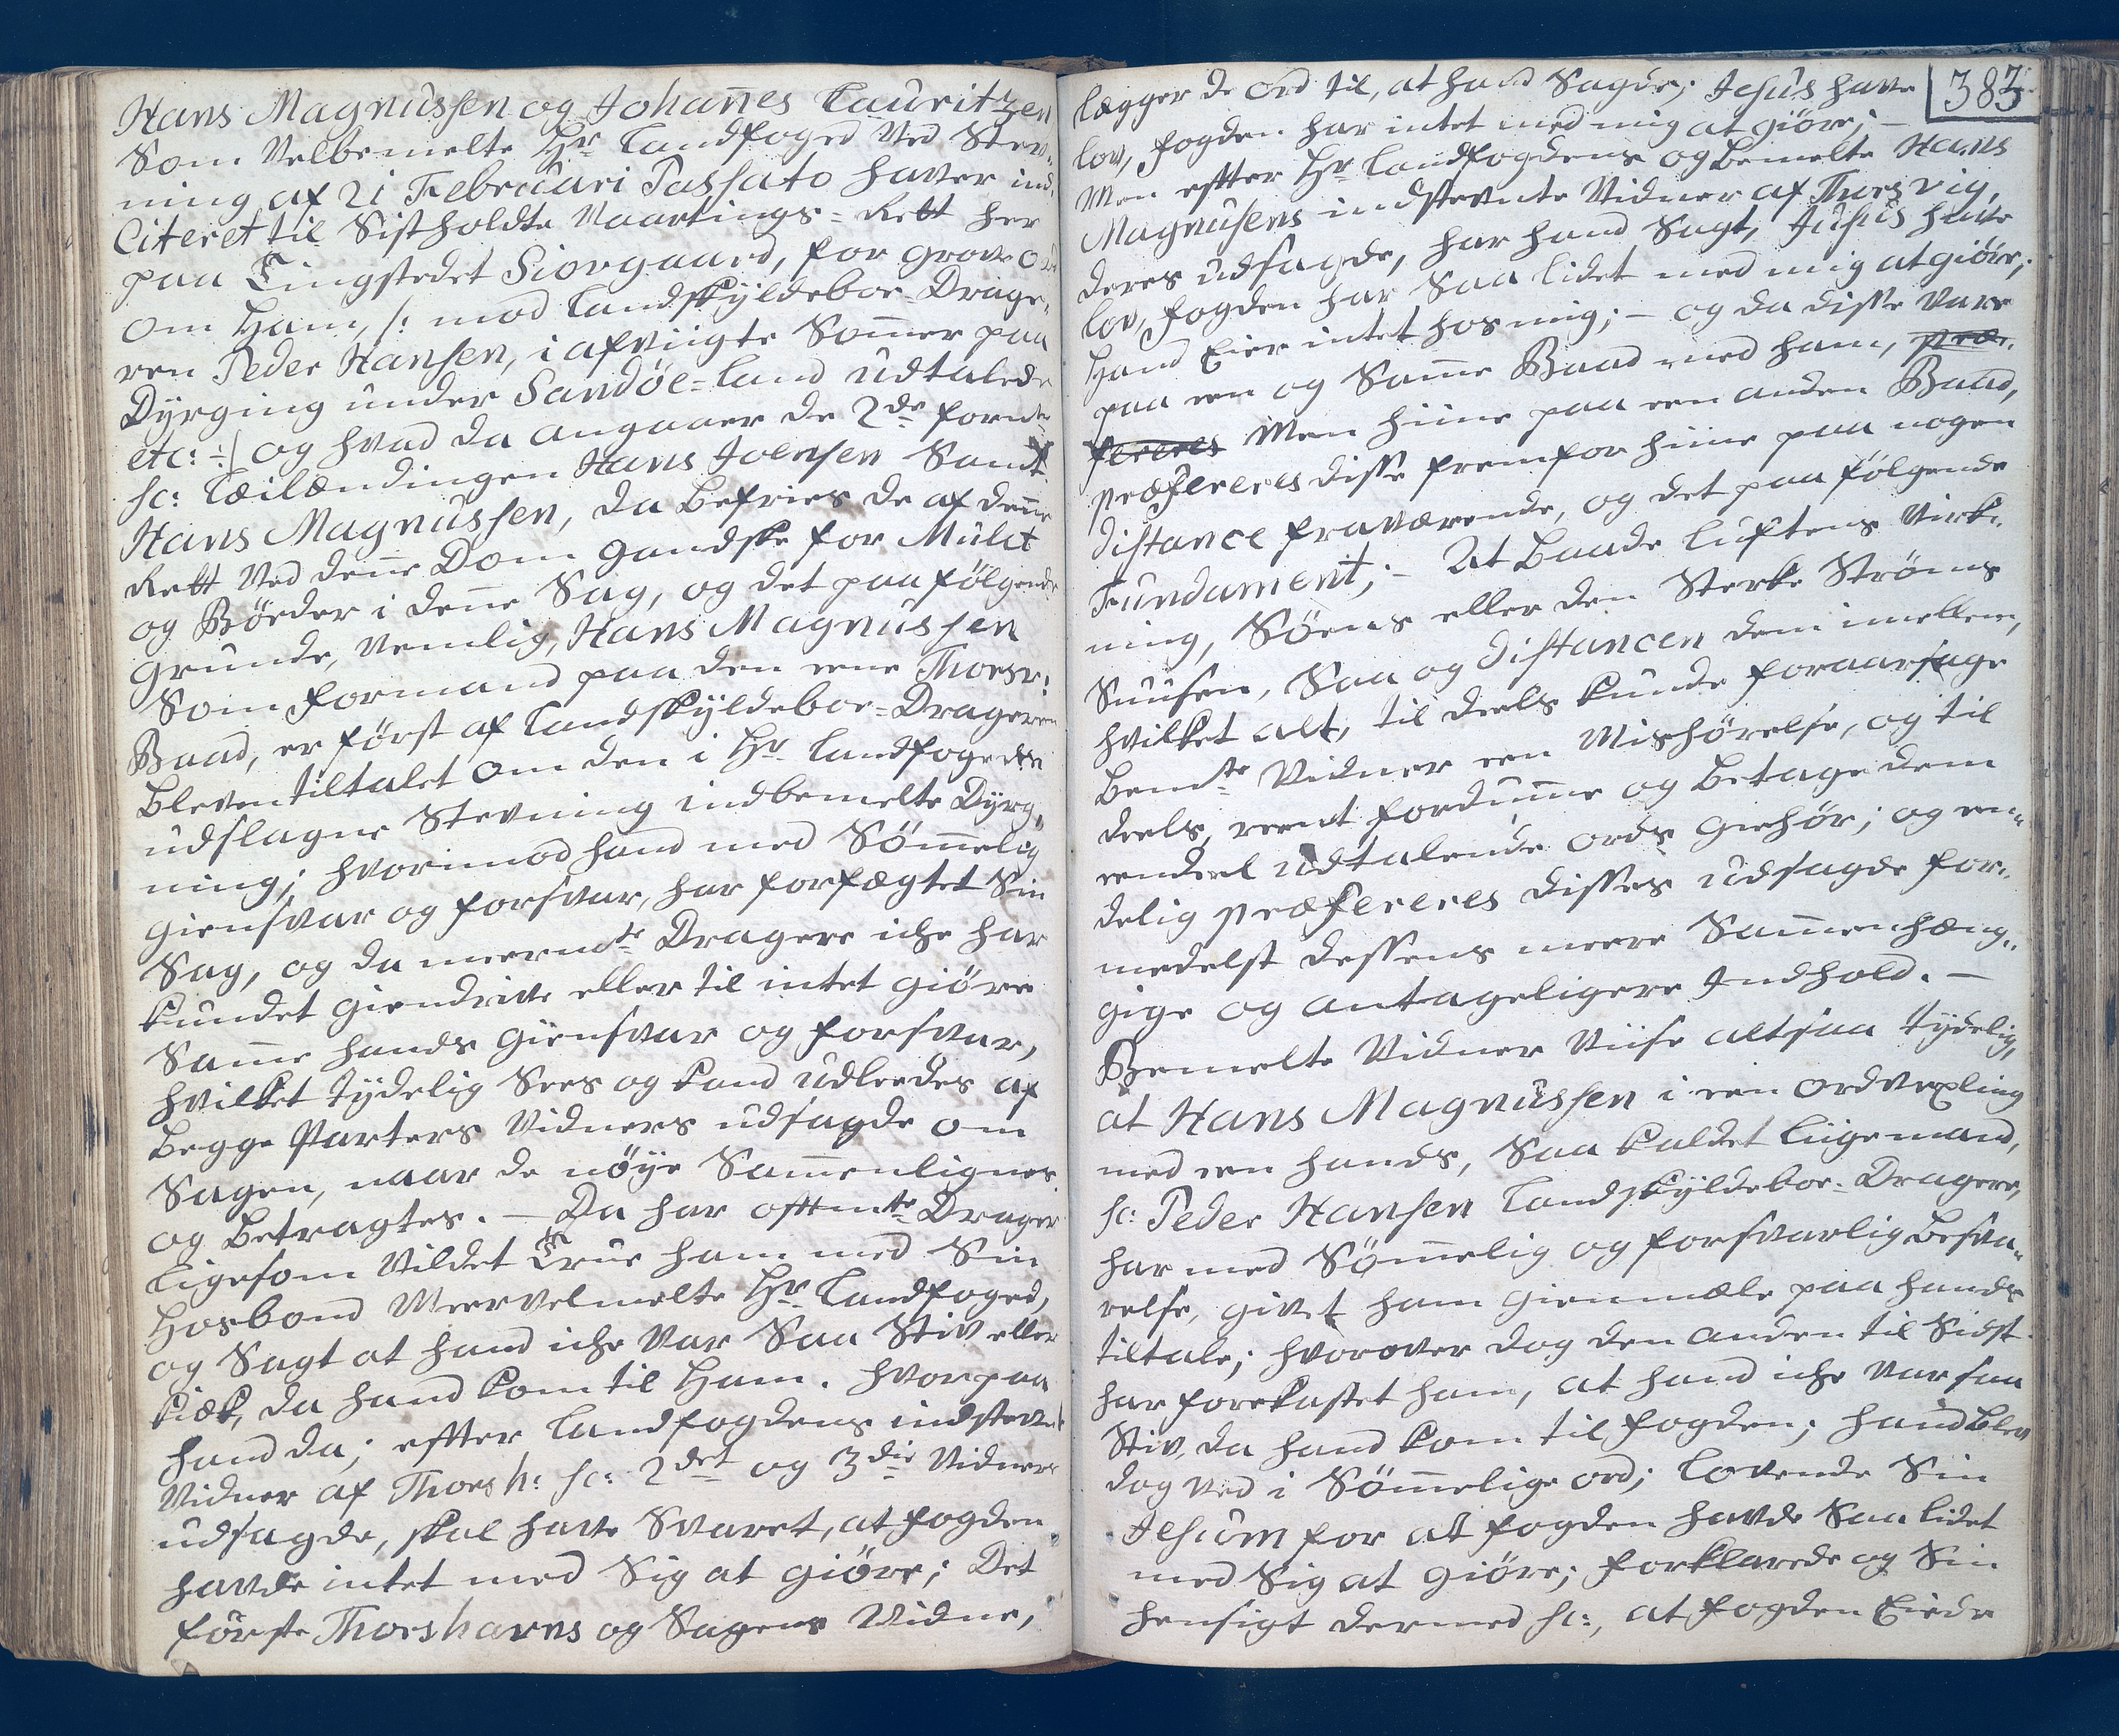 Hans Magnussen og Johannes Lauritzen
som Velbemelte Hr Landfoged Ved Stev¬
ning af 21 Februari Passato haver ind¬
Citeret til Sistholdte Vaartings-Rett her
paa Tingstedet Siovgaard, for grove Ord
om Ham, /: mod Landskÿldeboe-Drage¬
ren Peder Hansen, i afviigte Sommer paa
Dÿrging under Sandøe-Land udtalede
etc: :/ og hvad da angaaer de 2de fornte
sc: Leilændingen Hans Joensen samt
Hans Magnussen, da befries de af denne
Rett Ved denne Dom gandske for Mulct
og Bøeder i denne Sag, og det paa følgende
Grunde, Nemlig, Hans Magnussen
som formand paa den eene Thoesv:
Baad, er først af Landskÿldeboe-Drageren
bleven tiltalet om den i Hr Landfogedens
udslagne Stevning indbemelte Dÿrg¬
ning; hvorimod hand med Sømmelig
giensvar og forsvar, har forfægtet Sin
Sag, og da meermte Dragere iche har
kundet giendrive eller til intet giøre
Samme hands giensvar og forsvar,
hvilket tÿdelig Sees og kand udleedes af
begge Parters Vidners udsagde om
Sagen, naar de nøÿe Sammenlignes
og betragtes. — Da har offtmte Drager
ligesom Vildet True ham med Sin
Hosbond Meervelmelte Hr Landfoged,
og Sagt at hand iche Var Saa Stiv eller
kiæk, da hand kom til Ham. hvorpaa
hand da; effter Landfogdens indstevnte
Vidner af Thorsh: sc: 2det og 3die Vidners
udsagde, skal have Svaret, at fogden
havde intet med Sig at giøre; Det
første Thorshavns og Sagens Vidne,
383
lægger de Ord til, at hand Sagde; Jesus have
lov, fogden har intet med mig at giøre; —
Men effter Hr Landfogdens og bemelte Hans
Magnusens indstevnte Vidner af Thorsvig,
deres udsagde, har hand Sagt, Jusus have
lov, fogden har Saa lidet med mig at giøre;
Hand Eier intet hos mig; — og da disse Vare
paa een og Samme Baad med ham, præ¬
fereres Men hiine paa een anden Baad,
præfereres disse fremfor hiine paa nogen
distance fraværende, og det paa følgende
Fundament; — At baade Luftens Virk¬
ning, Søens eller den Sterke Strøms
Suusen, Saa og distancen dem imellem,
hvilket alt, til deels kunde foraarsage
bemte Vidner een Mishørelse, og til
deels, reent fordumme og betage dem
eendeel udtalende ords gehør; og en¬
delig præfereres disses udsagde for¬
medelst dessens meere Sammenhæng¬
gige og antageligere Indhold. —
Bemelte Vidner Viise altsaa tÿdelig,
at Hans Magnussen i een ordvexling
med een hands, Saa kaldet Liigemand,
sc: Peder Hansen Landskÿldeboe-Dragere,
har med Sømmelig og forsvarlig besva¬
relse, givet ham gienmæle paa hands
tiltale; hvorover dog den anden til Sidst
har forekastet ham, at hand iche var saa
Stiv, da hand kom til fogden; hand blev
dog ved i Sømmelige ord; Lovende Sin
Jesum for at fogden havde Saa lidet
med Sig at giøre; forklarede og Sin
hensigt dermed sc:, at fogden Eiede